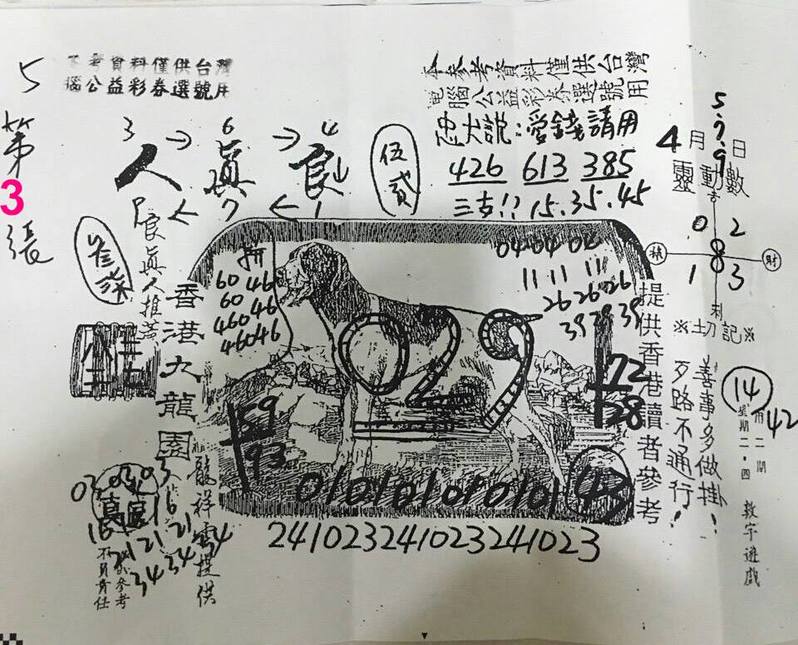 5
第
3
張
本參考資料僅供台灣
電腦公益彩券選號用
本參考資料僅供台灣
電腦公益彩券選號用
愛錢請用
426 613 385
三支!! 15.35.45
伍貳
3 → 6 → 4
人真良
← 7 ← 1
良真人推荐
香港九龍園
龍祥雲提供
60 46
60 46
460 46
460 46
04 04 04
11 11 11
26 26 26
39 39 39
029
59
93
72
28
43
010101010101
241023241023241023
03 03 03
16
21 21 21
34 34 34
不負責任
參考
5.7.9
4月 日
靈動數
0 2
8
1 3
財
※切記※
提供香港讀者參考
善事多做掛!
歹路不通行!
14
42
星期二.四
數字遊戲